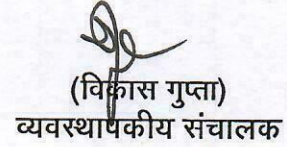 (विकास गुप्ता)
व्यवस्थापकीय संचालक